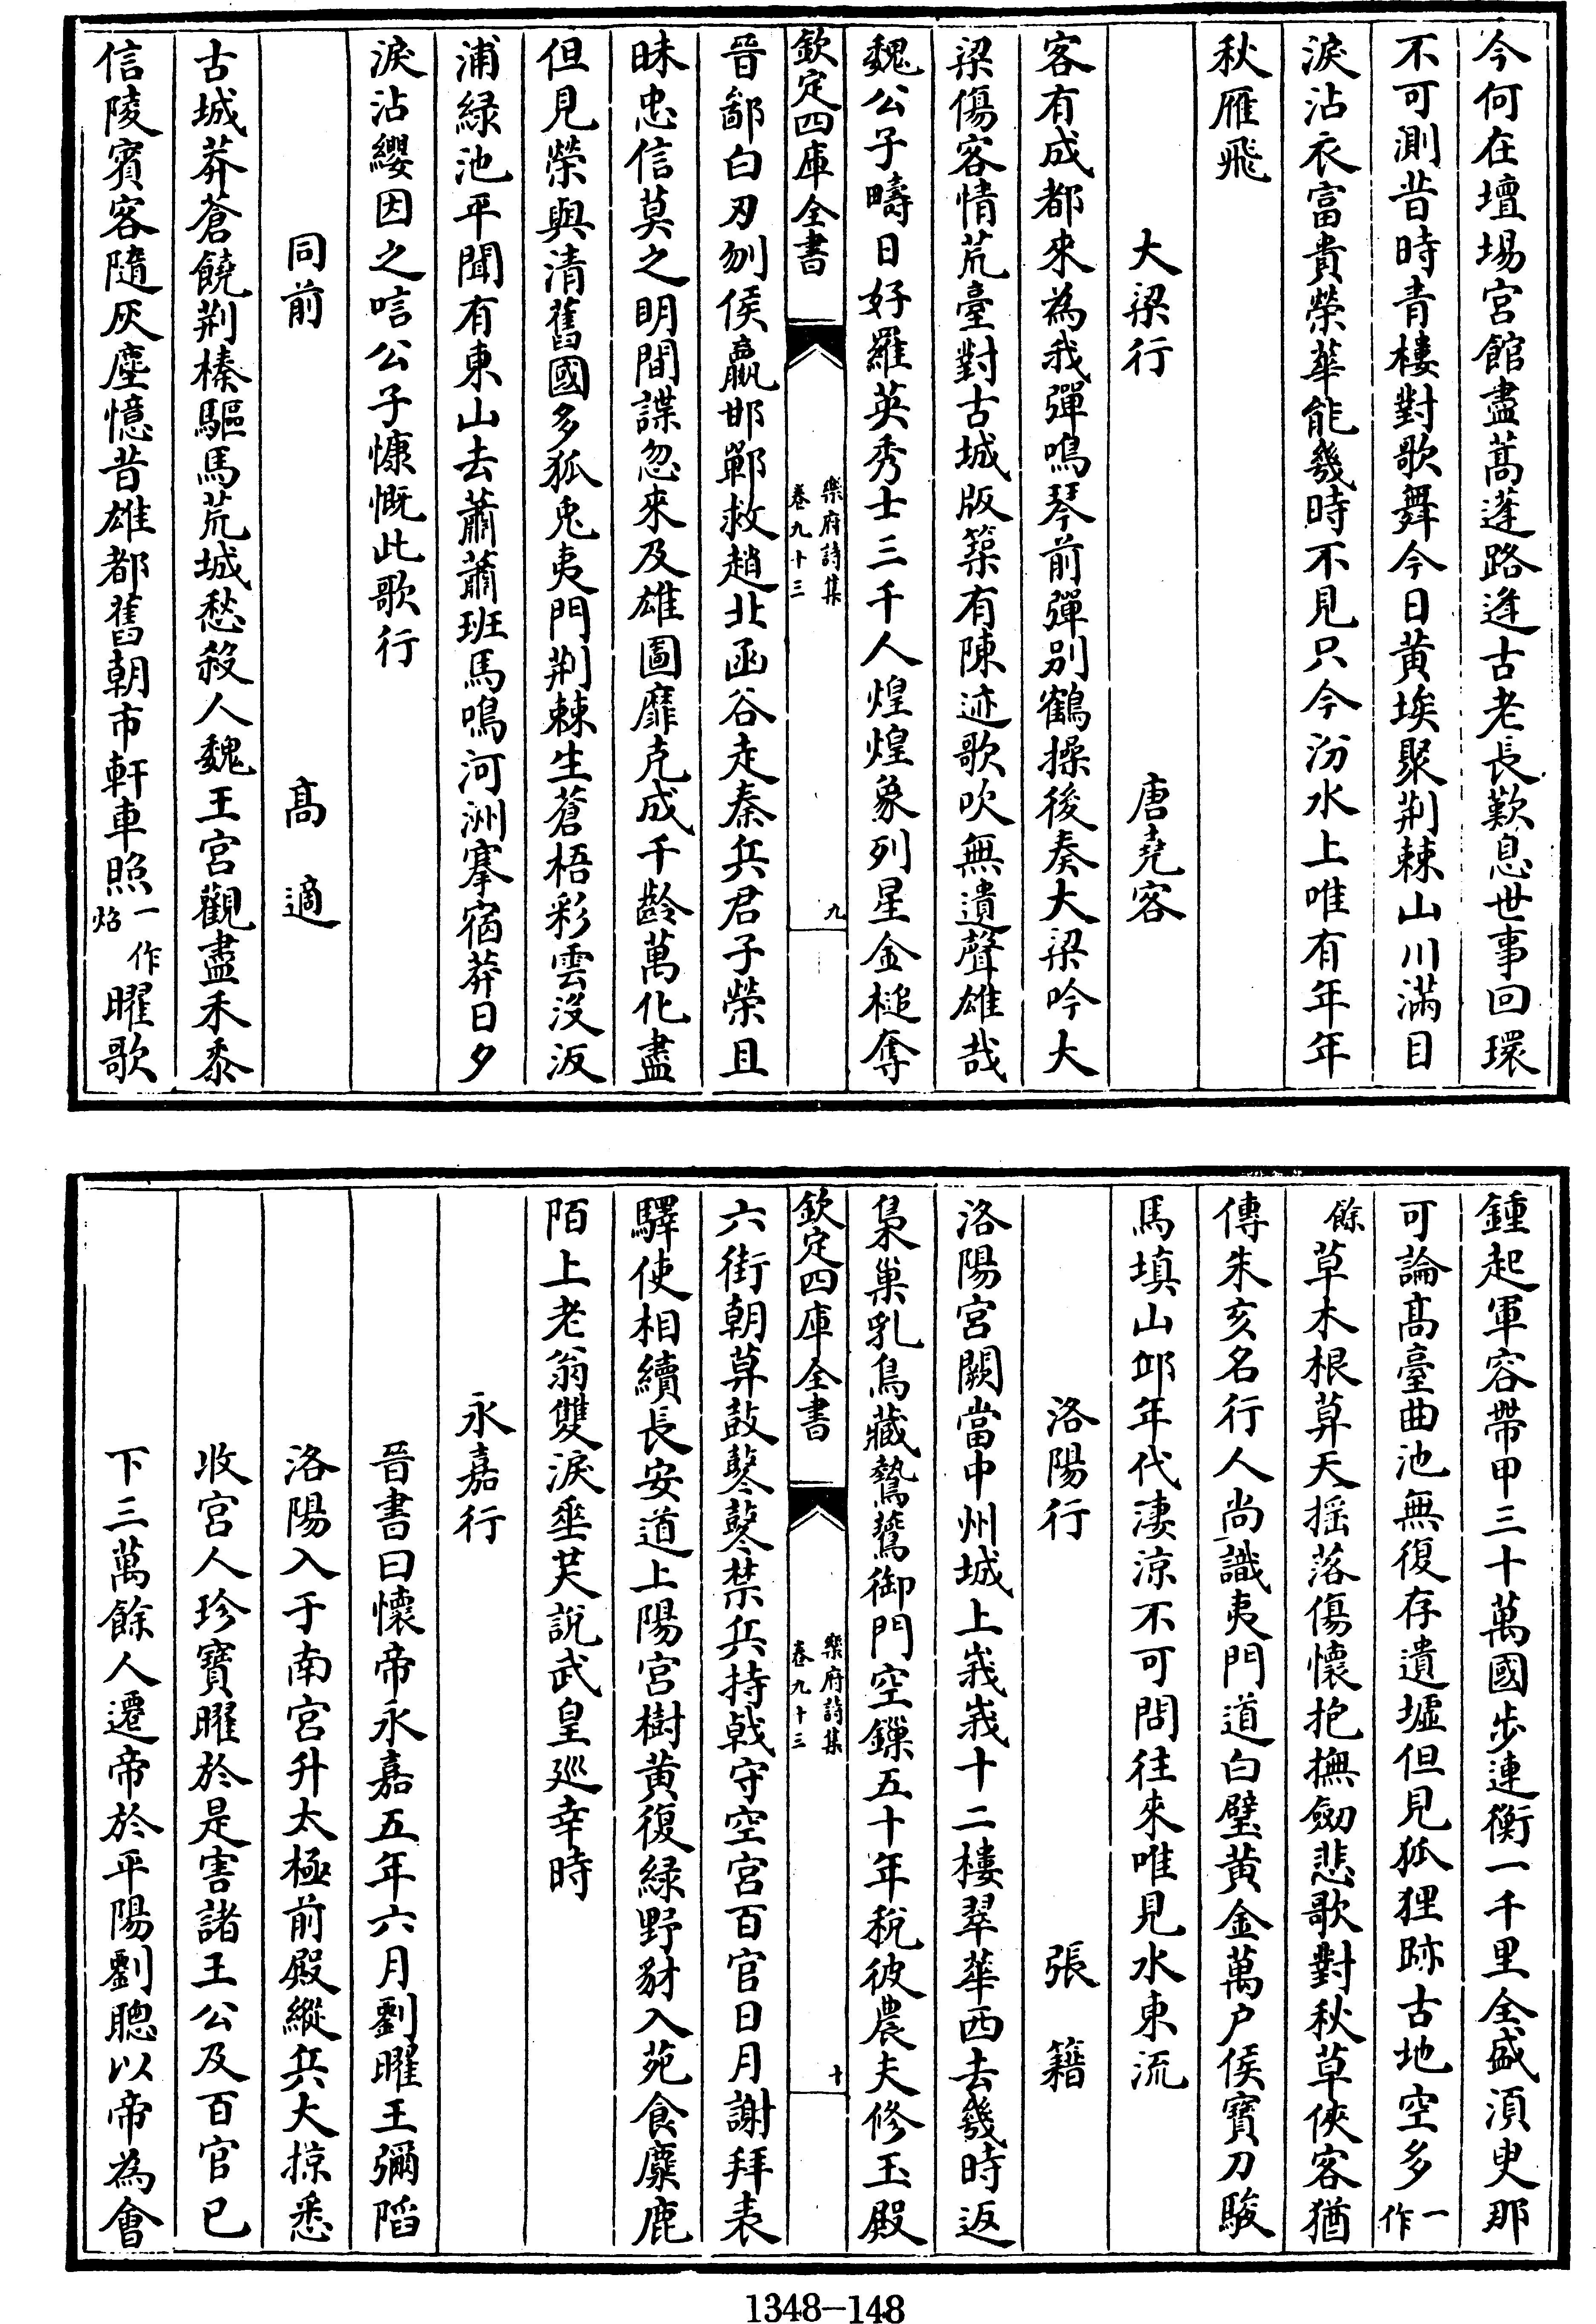 今何在壇場宮館盡蒿蓬路逢古老長歎息世事回環
不可測昔時青樓對歌舞今日黄埃聚荆棘山川滿目
淚沾衣富貴榮華能幾時不見只今汾水上唯有年年
秋雁飛
大梁行 唐堯客
客有成都來為我彈鳴琴前彈别鶴操後奏大梁吟大
梁傷客情荒臺對古城版築有陳迹歌吹無遺聲雄哉
魏公子疇日好羅英秀士三千人煌煌象列星金槌奪
欽定四庫全書 樂府詩集 卷九十三 九
晉鄙白刃刎侯嬴邯鄲救趙北函谷走秦兵君子榮且
昧忠信莫之明間諜忽來及雄圖靡克成千齡萬化盡
但見榮與清舊國多狐兎夷門荆棘生蒼梧彩雲没汳
浦緑池平聞有東山去蕭蕭班馬鳴河洲搴宿莽日夕
淚沾纓因之唁公子慷慨此歌行
同前 髙適
古城莽蒼饒荆榛驅馬荒城愁殺人魏王宮觀盡禾黍
信陵賓客隨灰塵憶昔雄都舊朝市軒車照一作焰曜歌
鍾起軍容帶甲三十萬國步連衡一千里全盛湏臾那
可論髙臺曲池無復存遺墟但見狐狸跡古地空多一作
餘草木根草天揺落傷懷抱撫劒悲歌對秋草俠客猶
傳朱亥名行人尚識夷門道白璧黄金萬户侯寶刀駿
馬填山邱年代淒涼不可問往來唯見水東流
洛陽行 張籍
洛陽宮闕當中州城上峩峩十二樓翠華西去幾時返
梟巢乳鳥藏蟄鷰御門空鏁五十年稅彼農夫修玉殿
欽定四庫全書 樂府詩集 卷九十三 十
六街朝草鼓鼕鼕禁兵持戟守空宮百官日月謝拜表
驛使相續長安道上陽宮樹黄復緑野豺入苑食麋鹿
陌上老翁雙淚垂共說武皇廵幸時
永嘉行
晉書曰懷帝永嘉五年六月劉曜王彌陷
洛陽入于南宮升太極前殿縱兵大掠悉
收宮人珍寶曜於是害諸王公及百官已
下三萬餘人遷帝於平陽劉聰以帝為會
1348-148